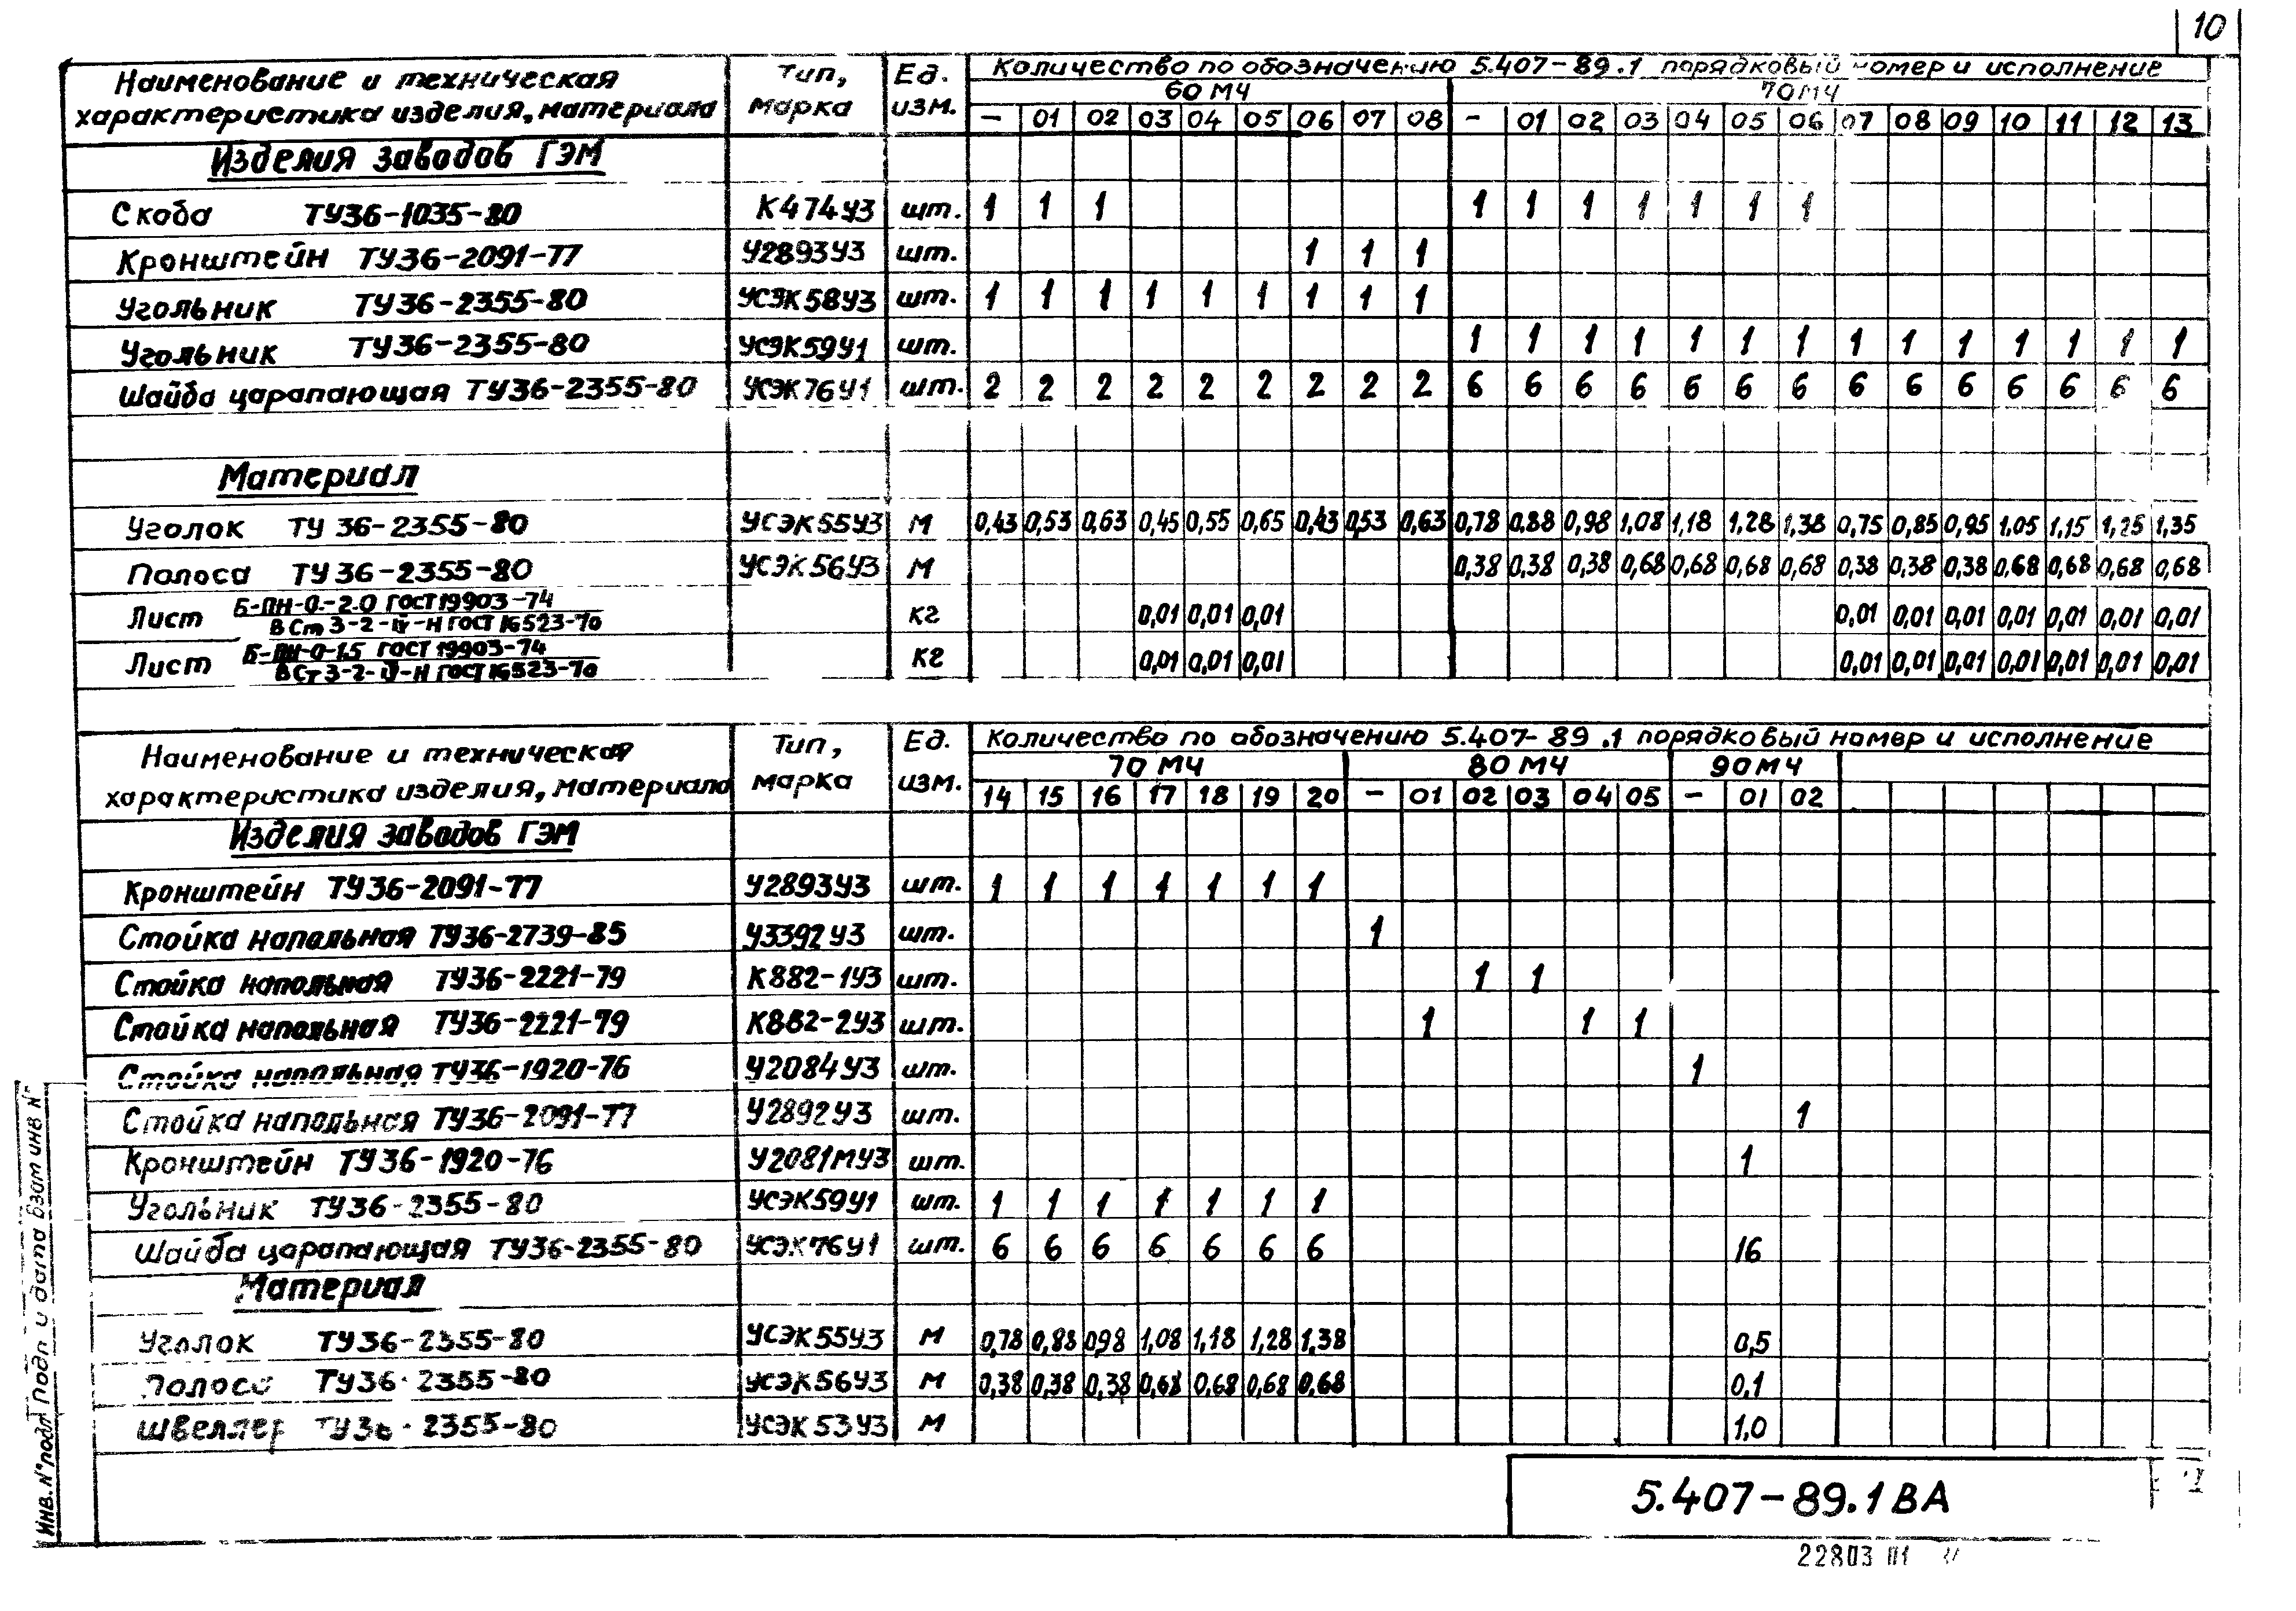 10
Наименование и техническая характеристика изделия, материала Тип, марка Ед. изм. Количество по обозначению 5.407-89.1 порядковый номер и исполнение
60МЧ 70МЧ
- 01 02 03 04 05 06 07 08 - 01 02 03 04 05 06 07 08 09 10 11 12 13
Изделия заводов ГЭМ
Скоба ТУ36-1035-80 К474У3 шт. 1 1 1 1 1 1 1 1 1 1
Кронштейн ТУ36-2091-77 У2893У3 шт. 1 1 1
Угольник ТУ36-2355-80 УСЭК58У3 шт. 1 1 1 1 1 1 1 1 1
Угольник ТУ36-2355-80 УСЭК59У1 шт. 1 1 1 1 1 1 1 1 1 1 1 1 1 1
Шайба царапающая ТУ36-2355-80 УСЭК76У1 шт. 2 2 2 2 2 2 2 2 2 6 6 6 6 6 6 6 6 6 6 6 6 6 6
Материал
Уголок ТУ 36-2355-80 УСЭК55У3 М 0,43 0,53 0,63 0,45 0,55 0,65 0,43 0,53 0,63 0,78 0,88 0,98 1,08 1,18 1,28 1,38 0,75 0,85 0,95 1,05 1,15 1,25 1,35
Полоса ТУ 36-2355-80 УСЭК56У3 М 0,38 0,38 0,38 0,68 0,68 0,68 0,68 0,38 0,38 0,38 0,68 0,68 0,68 0,68
Лист Б-ПН-О-2.0 ГОСТ19903-74 кг 0,01 0,01 0,01 0,01 0,01 0,01 0,01 0,01 0,01 0,01
ВСт3-2-IV-Н ГОСТ 16523-70
Лист Б-ПН-О-1.5 ГОСТ 19903-74 кг 0,01 0,01 0,01 0,01 0,01 0,01 0,01 0,01 0,01 0,01
ВСт3-2-IV-Н ГОСТ 16523-70
Наименование и техническая характеристика изделия, материала Тип, марка Ед. изм. Количество по обозначению 5.407-89.1 порядковый номер и исполнение
70 МЧ 80 МЧ 90МЧ
14 15 16 17 18 19 20 - 01 02 03 04 05 - 01 02
Изделия заводов ГЭМ
Кронштейн ТУ36-2091-77 У2893У3 шт. 1 1 1 1 1 1 1
Стойка напольная ТУ36-2739-85 У3392У3 шт. 1
Стойка напольная ТУ36-2221-79 К882-1У3 шт. 1 1
Стойка напольная ТУ36-2221-79 К882-2У3 шт. 1 1 1
Стойка напольная ТУ36-1920-76 У2084У3 шт. 1
Стойка напольная ТУ36-2091-77 У2892У3 шт. 1
Кронштейн ТУ36-1920-76 У2081МУ3 шт. 1
Угольник ТУ36-2355-80 УСЭК59У1 шт. 1 1 1 1 1 1 1
Шайба царапающая ТУ36-2355-80 УСЭК76У1 шт. 6 6 6 6 6 6 6 16
Материал
Уголок ТУ36-2355-80 УСЭК55У3 М 0,78 0,88 0,98 1,08 1,18 1,28 1,38 0,5
Полоса ТУ36-2355-80 УСЭК56У3 М 0,38 0,38 0,38 0,68 0,68 0,68 0,68 0,1
Швеллер ТУ36-2355-80 УСЭК53У3 М 1,0
Инв. № подл Подп и дата Взам инв №
5.407-89.1ВА
22803 01